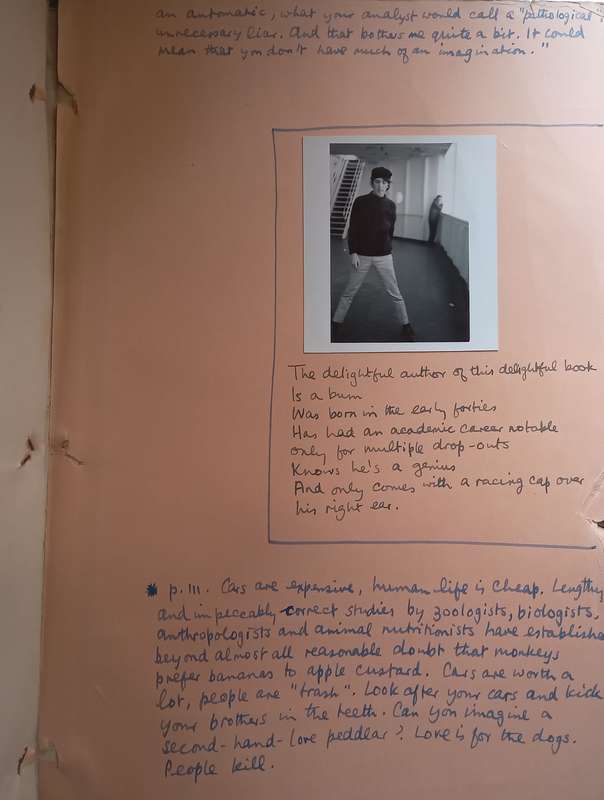 an automatic, what your analyst would call a "pathological
unnecessary liar. And that bothers me quite a bit. It could
mean that you don't have much of an imagination."
The delightful author of this delightful book
Is a bum
Was born in the early forties
Has had an academic career notable
only for multiple drop-outs
Knows he's a genius
And only comes with a racing cap over
his right ear.
* p. 111. Cars are expensive, human life is cheap. Lengthy
and impeccably correct studies by zoologists, biologists,
anthropologists and animal nutritionists have establishe
beyond almost all reasonable doubt that monkeys
prefer bananas to apple custard. Cars are worth a
lot, people are "trash". Look after your cars and kick
your brothers in the teeth. Can you imagine a
second-hand-love peddlar? Love is for the dogs.
People kill.